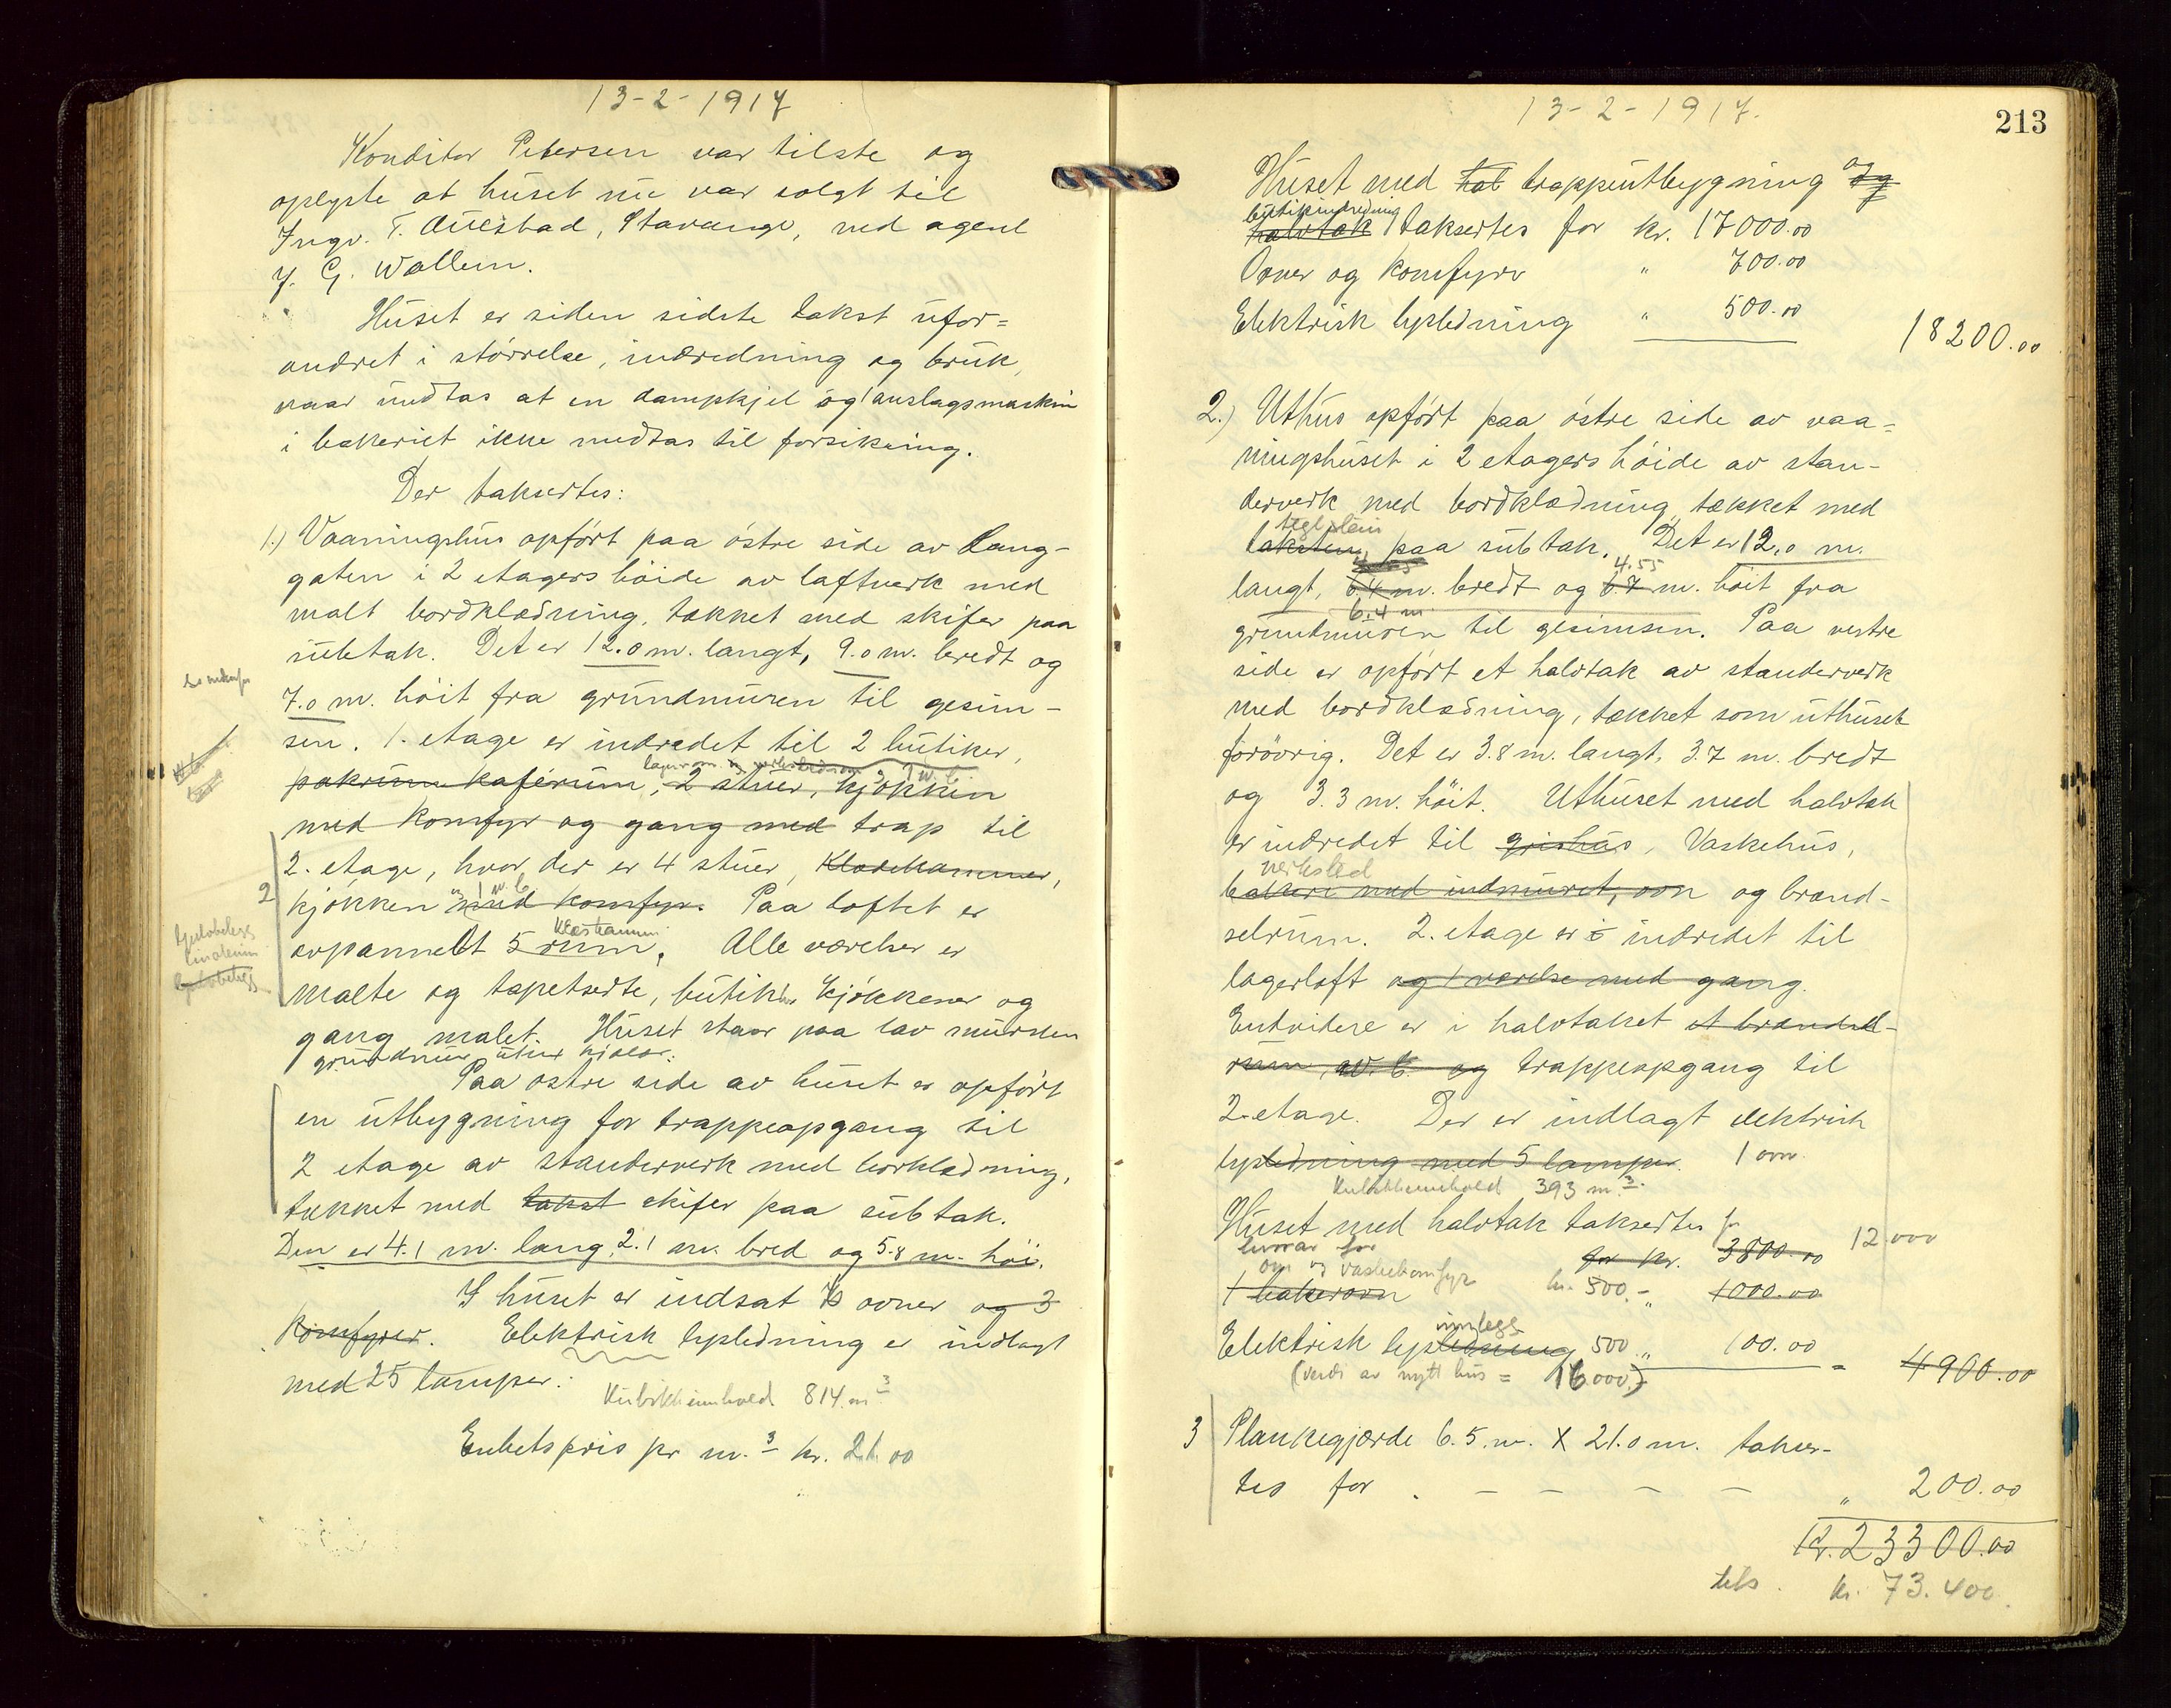 13-2-1917
Konditor Petersen var tilste og
oplyste at huset nu var solgt til
Ingv. T. Auestad, Stavanger, ved agent
J. G. Wallem.
Huset er siden sidste takst ufor=
andret i størrelse, indredning og bruk,
naar undtas at en dampkjel og 1 anslagsmaskin
i bakeriet ikke medtas til forsikring.
Der taksertes:
1.) Vaaningshus opført paa østre side av Lang-
gaten i 2 etagers høide av laftverk med
malt bordklædning, tækket med skifer paa
subtak. Det er 12.0 m. langt, 9.0 m. bredt og
7.0 m. høit fra grundmuren til gesim-
sen. 1. etage er indredet til 2 butiker,
lagerrom og verkstedrom og 1 w.c.
pakrum kaférum, 2 stuer, kjøkken
med komfyr og gang med trap til
2. etage, hvor der er 4 stuer, klædekammer,
2
og 1 w.c
kjøkken med komfyr. Paa loftet er
kleskammer
avpannelt 5 rum. Alle værelser er
linoleum
malte og tapetserte, butiker kjøkkener og
gang malet. Huset staar paa lav mursten
grundmur uten kjelder.
Paa østre side av huset er opført
en utbygning for trappeopgang til
2 etage av standerverk med borklædning,
tækket med takst skifer paa subtak.
Den er 4.1 m. lang, 2.1 m. bred og 5.8 m. høi.
I huset er indsat ovner og 3
komfyrer. Elektrisk lysledning er indlagt
med 25 lamper.
Kubikkinnhold 814 m3
Enhetspris pr m.3 kr. 21.00
13-2-1917.
213
Huset med hal trappeutbygning og
butikindredning
halvtak taksertes for kr. 17000.00
Ovner og komfyrer " 700.00
Elektrisk lysledning " 500.00
18200.00
2.) Uthus opført paa østre side av vaa=
ningshuset i 2 etagers høide av stan-
derverk med bordklædning, tækket med
teglstein
taksten paa subtak. Det er 12.0 m.
4.55
langt, 6.4 m. bredt og 6.7 m. høit fra
6.4 m.
grundmuren til gesimsen. Paa vestre
side er opført et halvtak av standerverk
med bordklædning, tækket som uthuset
forøvrig. Det er 3.8 m. langt, 3.7 m. bredt
og 3.3 m. høit. Uthuset med halvtak
er indredet til grishus, Vaskehus,
verksted
bakeri med indmuret, ovn og brænd-
selrum. 2. etage er indredet til
lagerloft og 1 værelse med gang.
Endvidere er i halvtaket et brændsel-
rum, w.c. og trappeopgang til
2. etage. Der er indlagt elektrisk
lysledning med 5 lamper. 1 ovn.
Kubikkinnhold 393 m.3
Huset med halvtak taksertes for
12.000
hvorav for
for kr. 3800.00
ovn og vaskekomfyr
1 bakerovn kr. 500.- " 1000.00
innlegg
Elektrisk lysledning 500 " 100.00
= 4900.00
(verdi av nytt hus = 16.000.-)
3 Plankegjærde 6.5. m. X 21.0 m. takser-
tes for . — — — — " 200.00
Kr. 23300.00
tils. kr. 73.400.